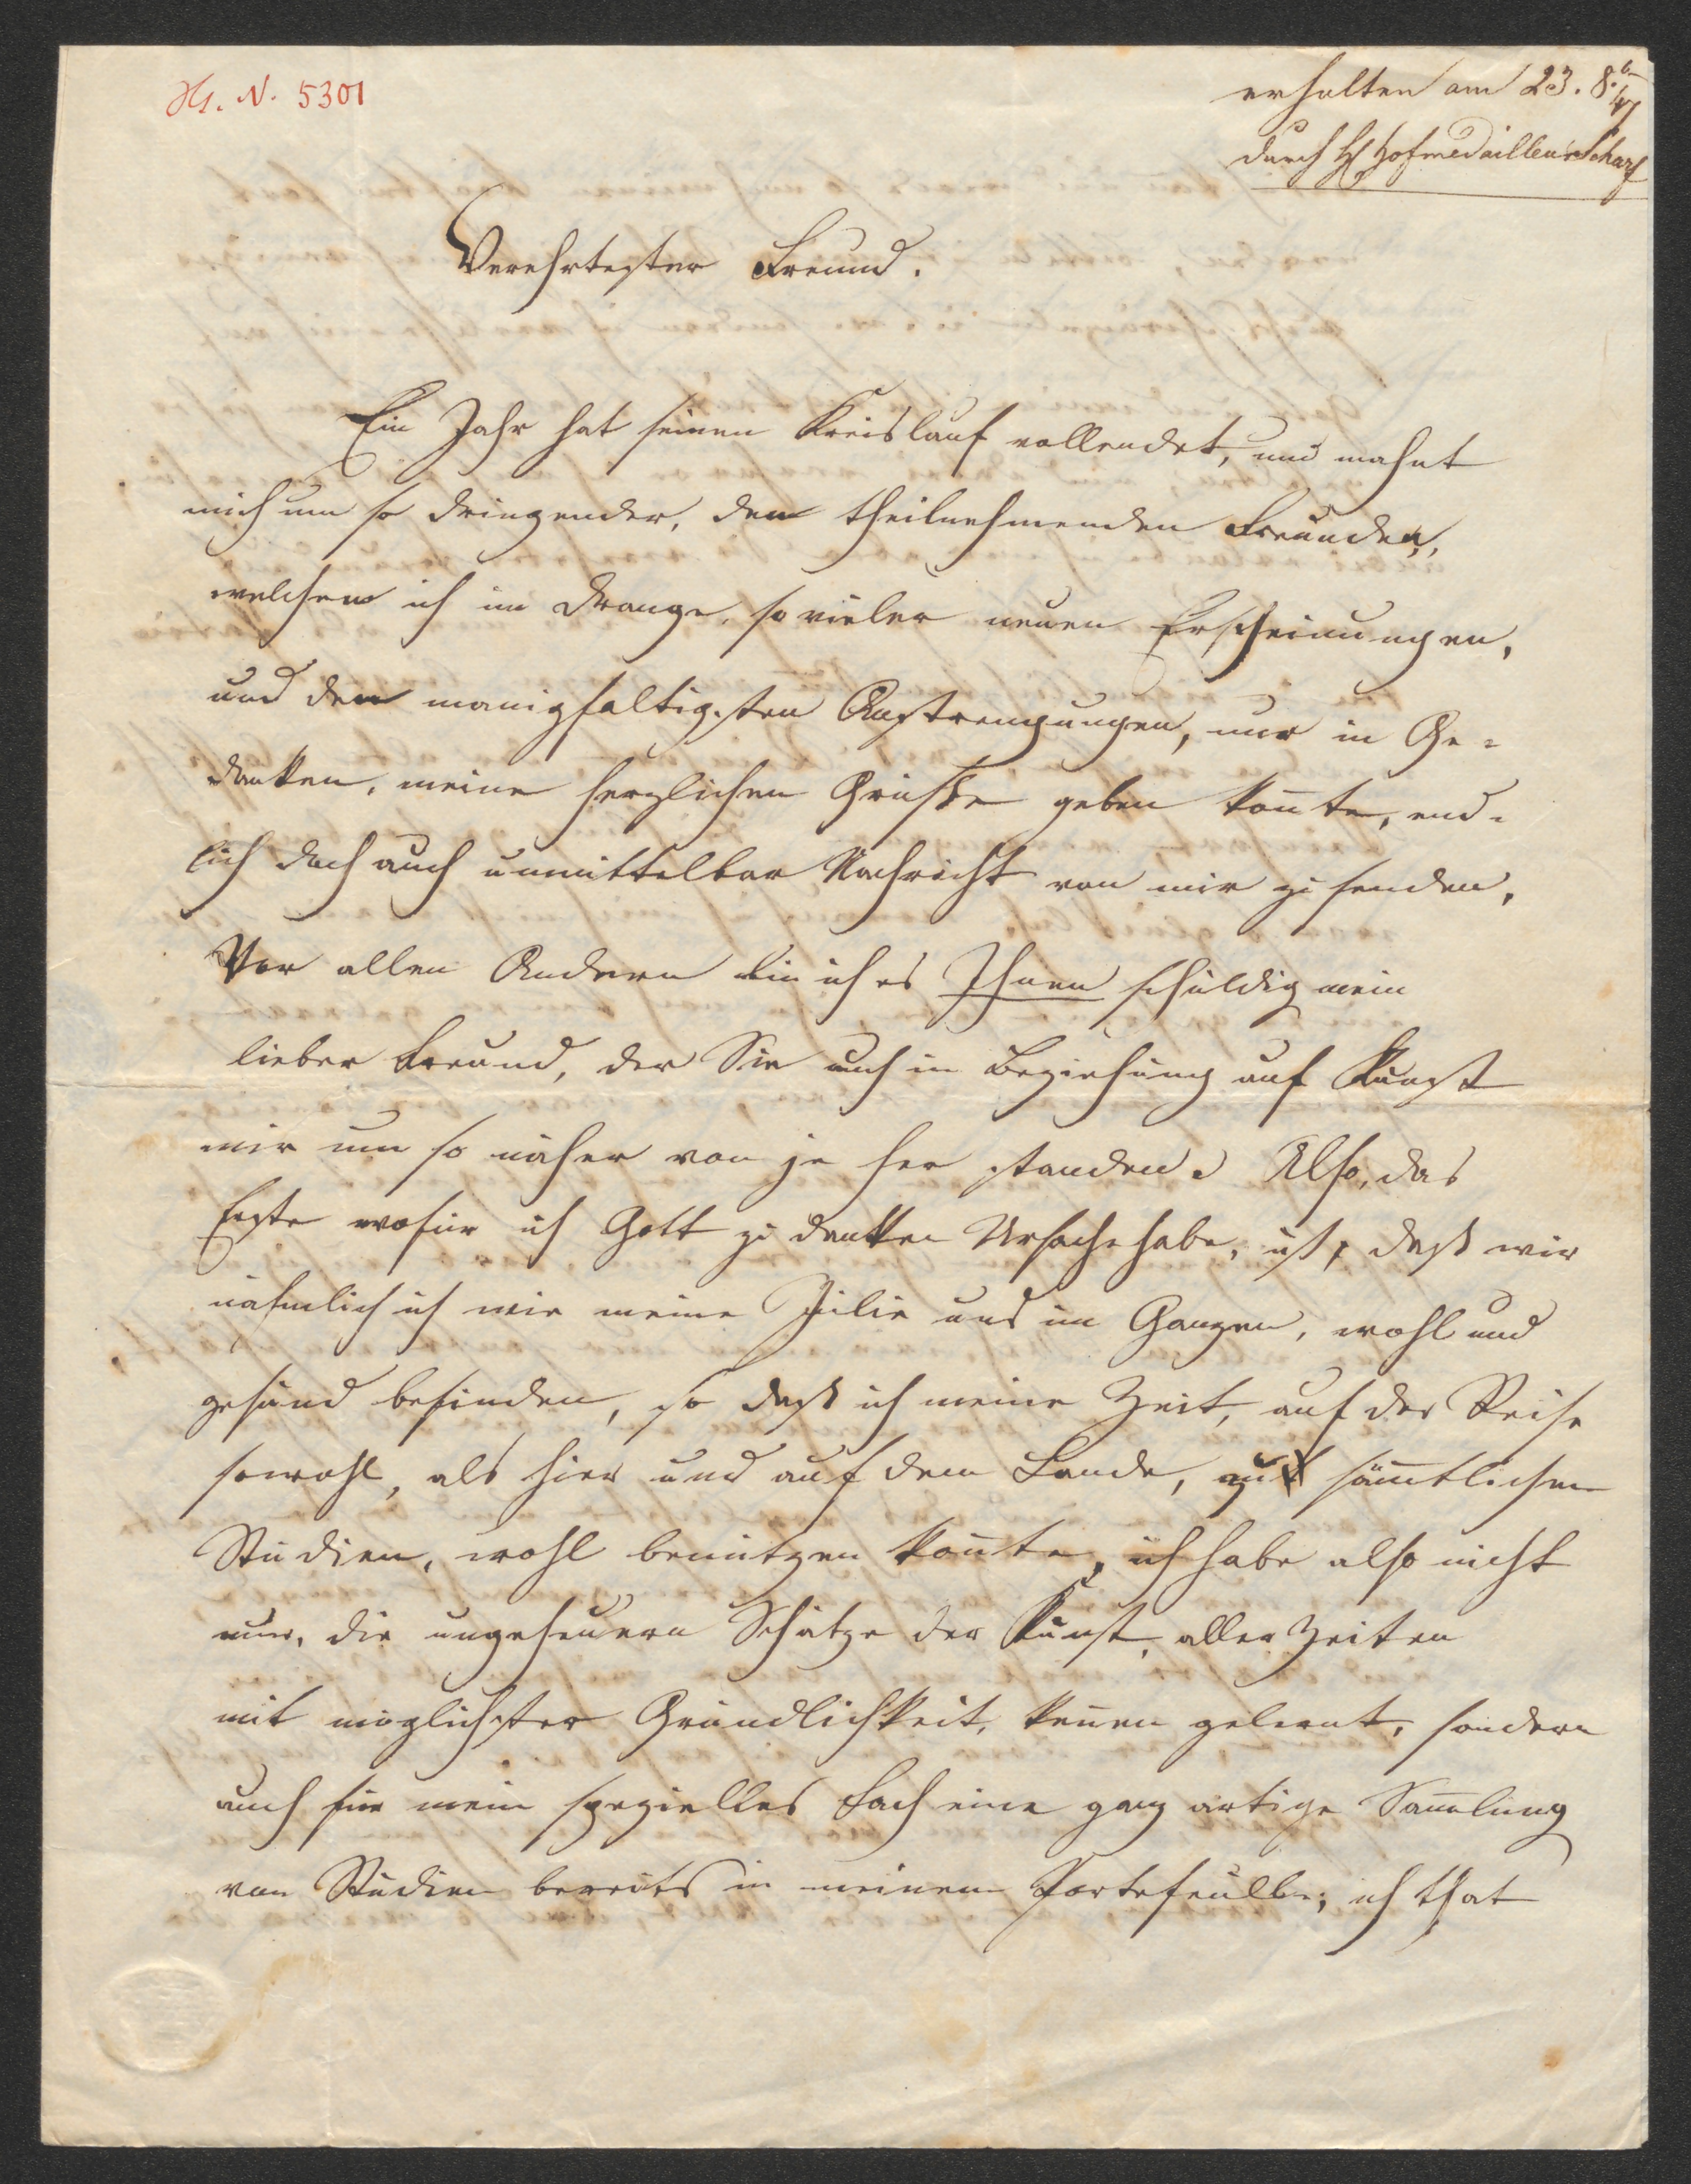 Hs. N. 5301
erhalten am 23. 8b 47
durch H Hofmedailleur Scharf
Verehrtester Freund.
Ein Jahr hat seinen Kreislauf vollendet, und mahnt
mich um so dringender, den theilnehmenden Freunden,
welchen ich im Drange, so vieler neuen Erscheinungen,
und den manigfaltigsten Anstrengungen, nur in Ge=
danken, meine herzlichen Grüße geben kon̄te, end=
lich doch auch unmittelbar Nachricht von mir zu senden,
Vor allen Andern bin ich es Ihnen schuldig mein
lieber Freund, der Sie auch in Beziehung auf Kunst
mir um so näher von je her standen. Also, das
Erste wofür ich Gott zu danken Ursache habe, ist, daß wir
nähmlich ich wie meine Julie uns im Ganzen, wohl und
gesund befinden, so daß ich meine Zeit, auf der Reise
sowohl, als hier und auf dem Lande, zu säm̄tlichen
Studien, wohl benützen kon̄te, ich habe also nicht
nur, die ungeheuern Schätze der Kunst, aller Zeiten
mit möglichster Gründlichkeit, ken̄en gelernt, sondern
auch für mein spezielles Fach eine ganz artige Sam̄lung
von Studien bereits in meinem Portefeulle; ich that